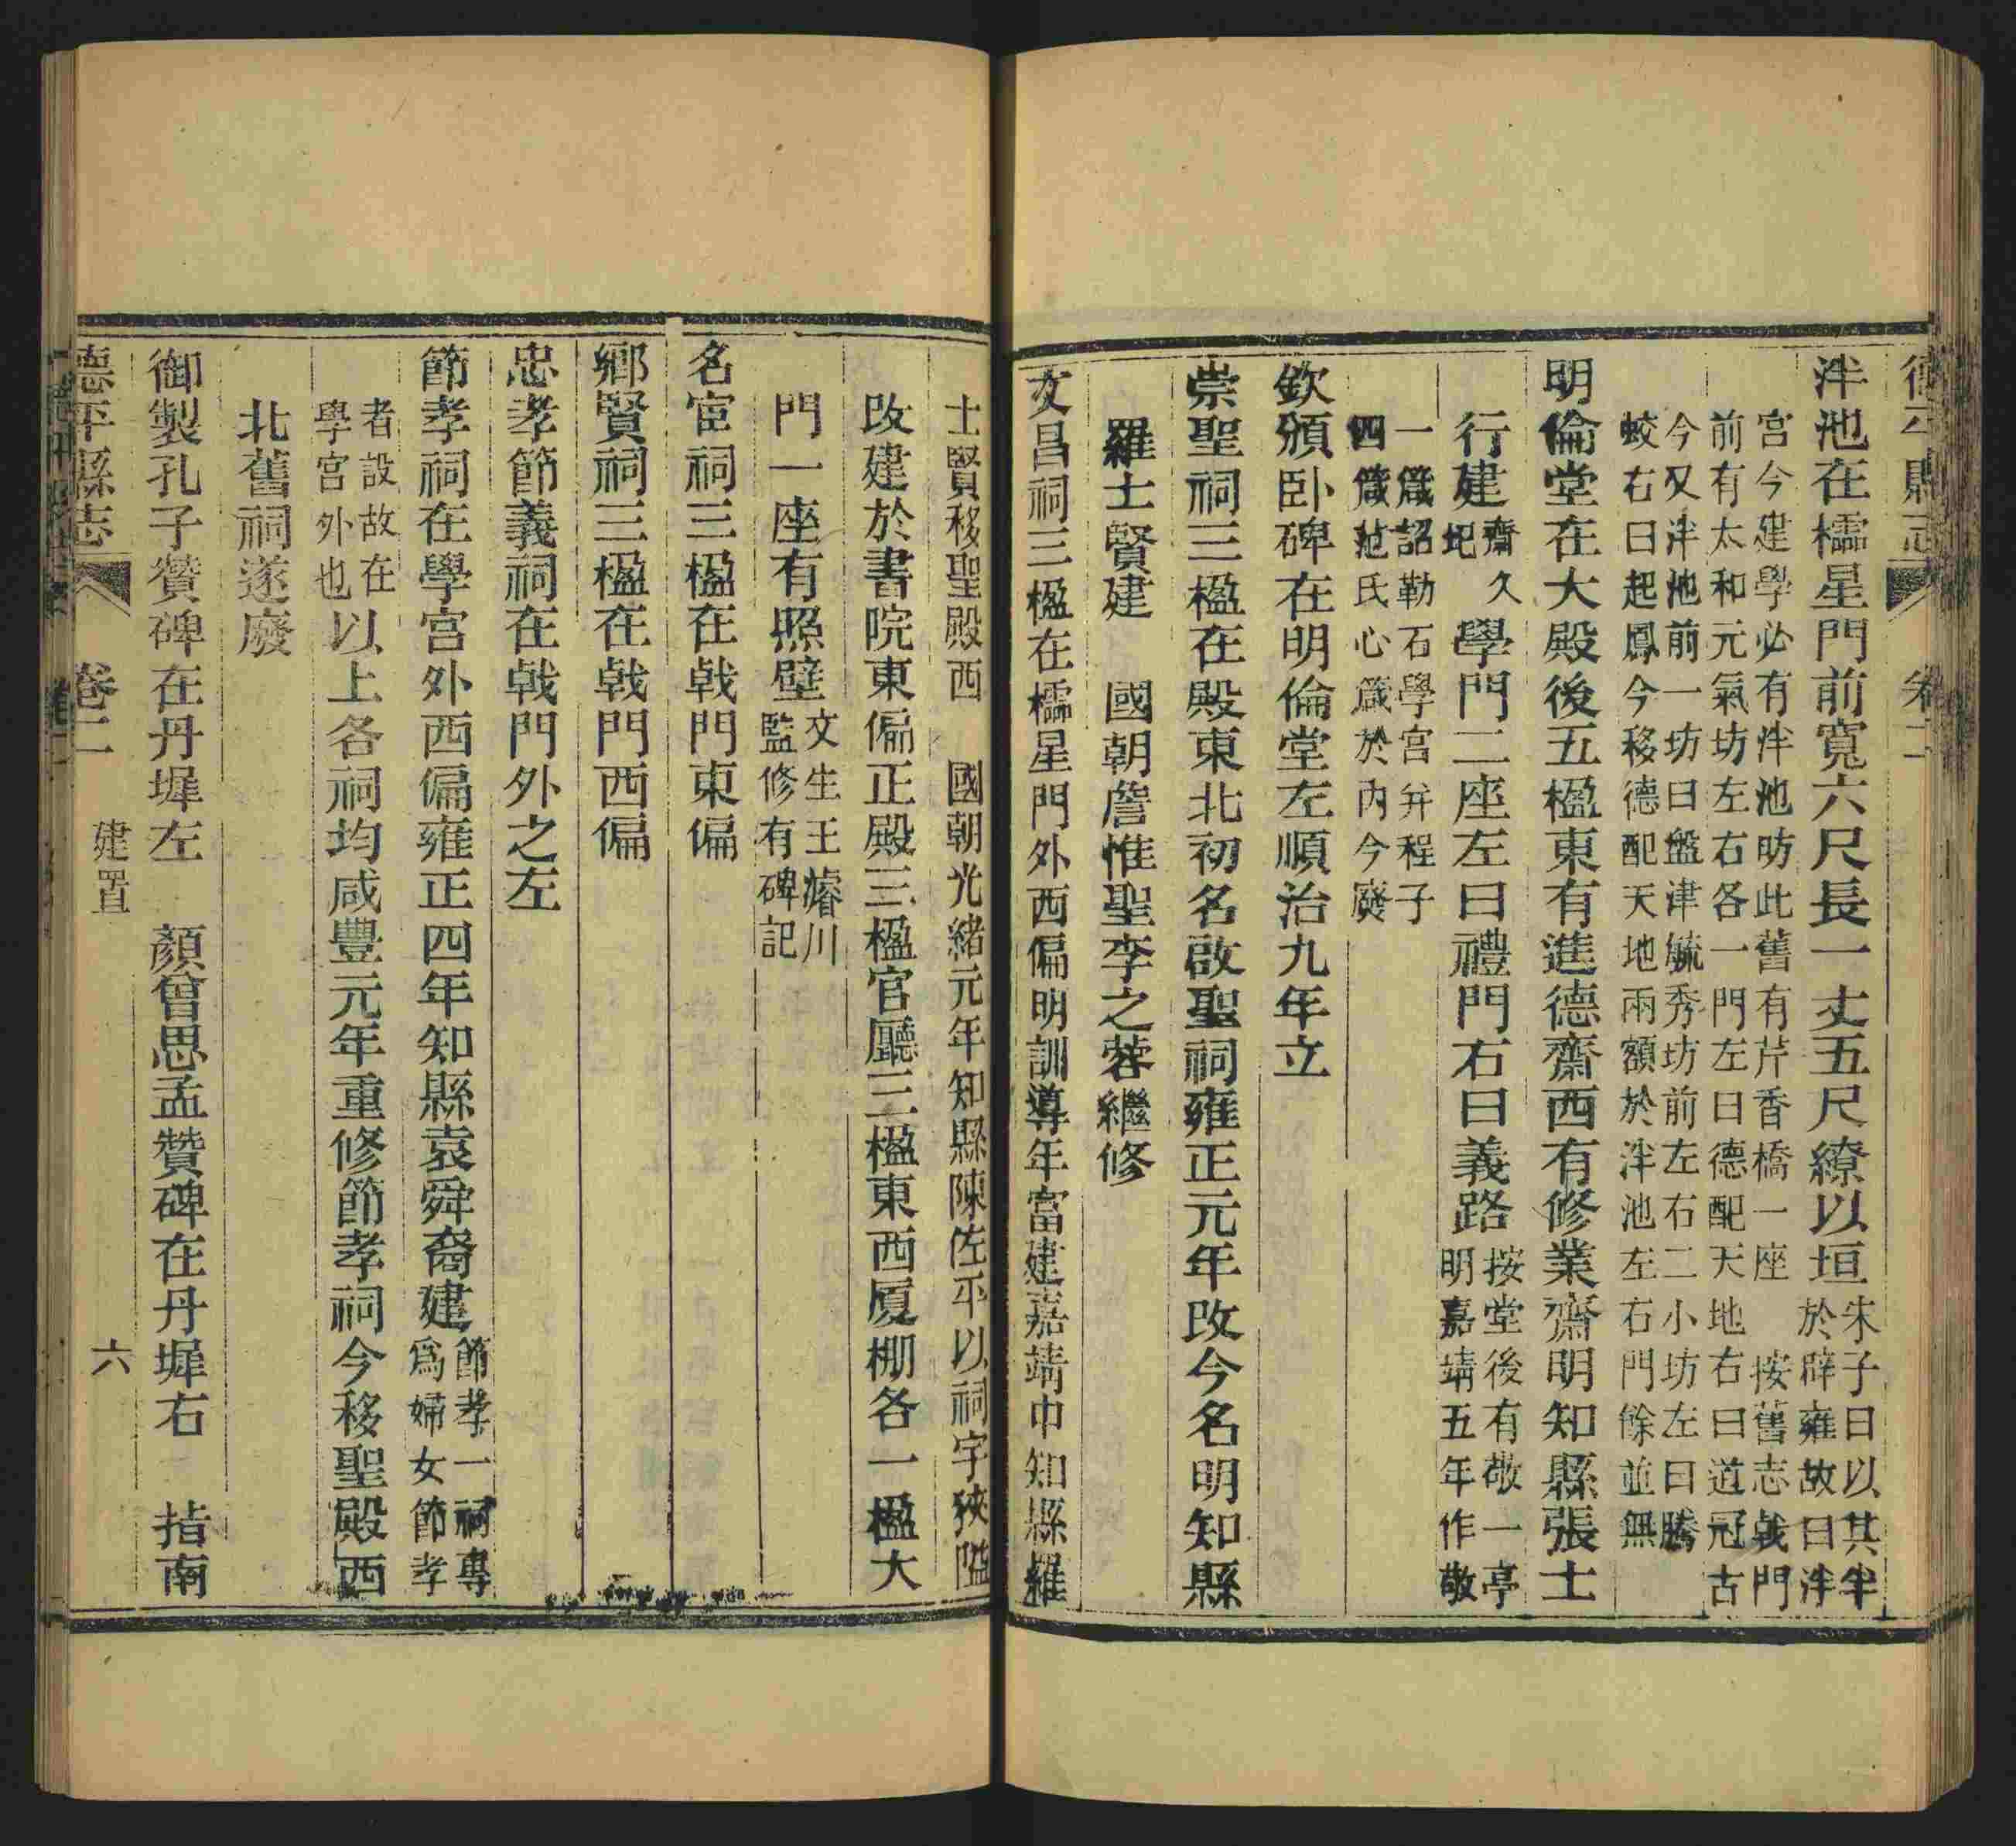 德平縣志　卷二
泮池在櫺星門前寬六尺長一丈五尺繚以垣
朱子曰以其半
於辟雍故曰泮
宮今建學必有泮池昉此舊有芹香橋一座　按舊志戟門
前有太和元氣坊左右各一門左曰德配天地右曰道冠古
今又泮池前一坊曰盤津毓秀坊前左右二小坊左曰騰
蛟右曰起鳳今移德配天地兩額於泮池左右門餘並無
明倫堂在大殿後五楹東有進德齋西有修業齋明知縣張士
行建
齋久
圮
學門二座左曰禮門右曰義路
按堂後有敬一亭
明嘉靖五年作敬
一箴詔勒石學宮并程子
四箴范氏心箴於內今廢
欽頒卧碑在明倫堂左順治九年立
崇聖祠三楹在殿東北初名啟聖祠雍正元年改今名明知縣
羅士賢建　國朝詹惟聖李之蓉繼修
文昌祠三楹在櫺星門外西偏明訓導年富建嘉靖中知縣羅
士賢移聖殿西　國朝光緒元年知縣陳佐平以祠宇狹隘
改建於書院東偏正殿三楹官廳三楹東西厦棚各一楹大
門一座有照壁
文生王濬川
監修有碑記
名宦祠三楹在戟門東偏
鄉賢祠三楹在戟門西偏
忠孝節義祠在戟門外之左
節孝祠在學宮外西偏雍正四年知縣袁舜裔建
節孝一祠專
爲婦女節孝
者設故在
學宮外也
以上各祠均咸豐元年重修節孝祠今移聖殿西
北舊祠遂廢
御製孔子贊碑在丹墀左　顏曾思孟贊碑在丹墀右　指南
德平縣志　卷二　建置　六